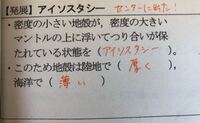 【発展】アイソスタシー センターに出た!
・密度の小さい地殻が、密度の大きい
マントルの上に浮いてつり合いが保
たれている状態を(アイソスタシー)
・このため地殻は陸地で(厚く)、
海洋で(薄い)